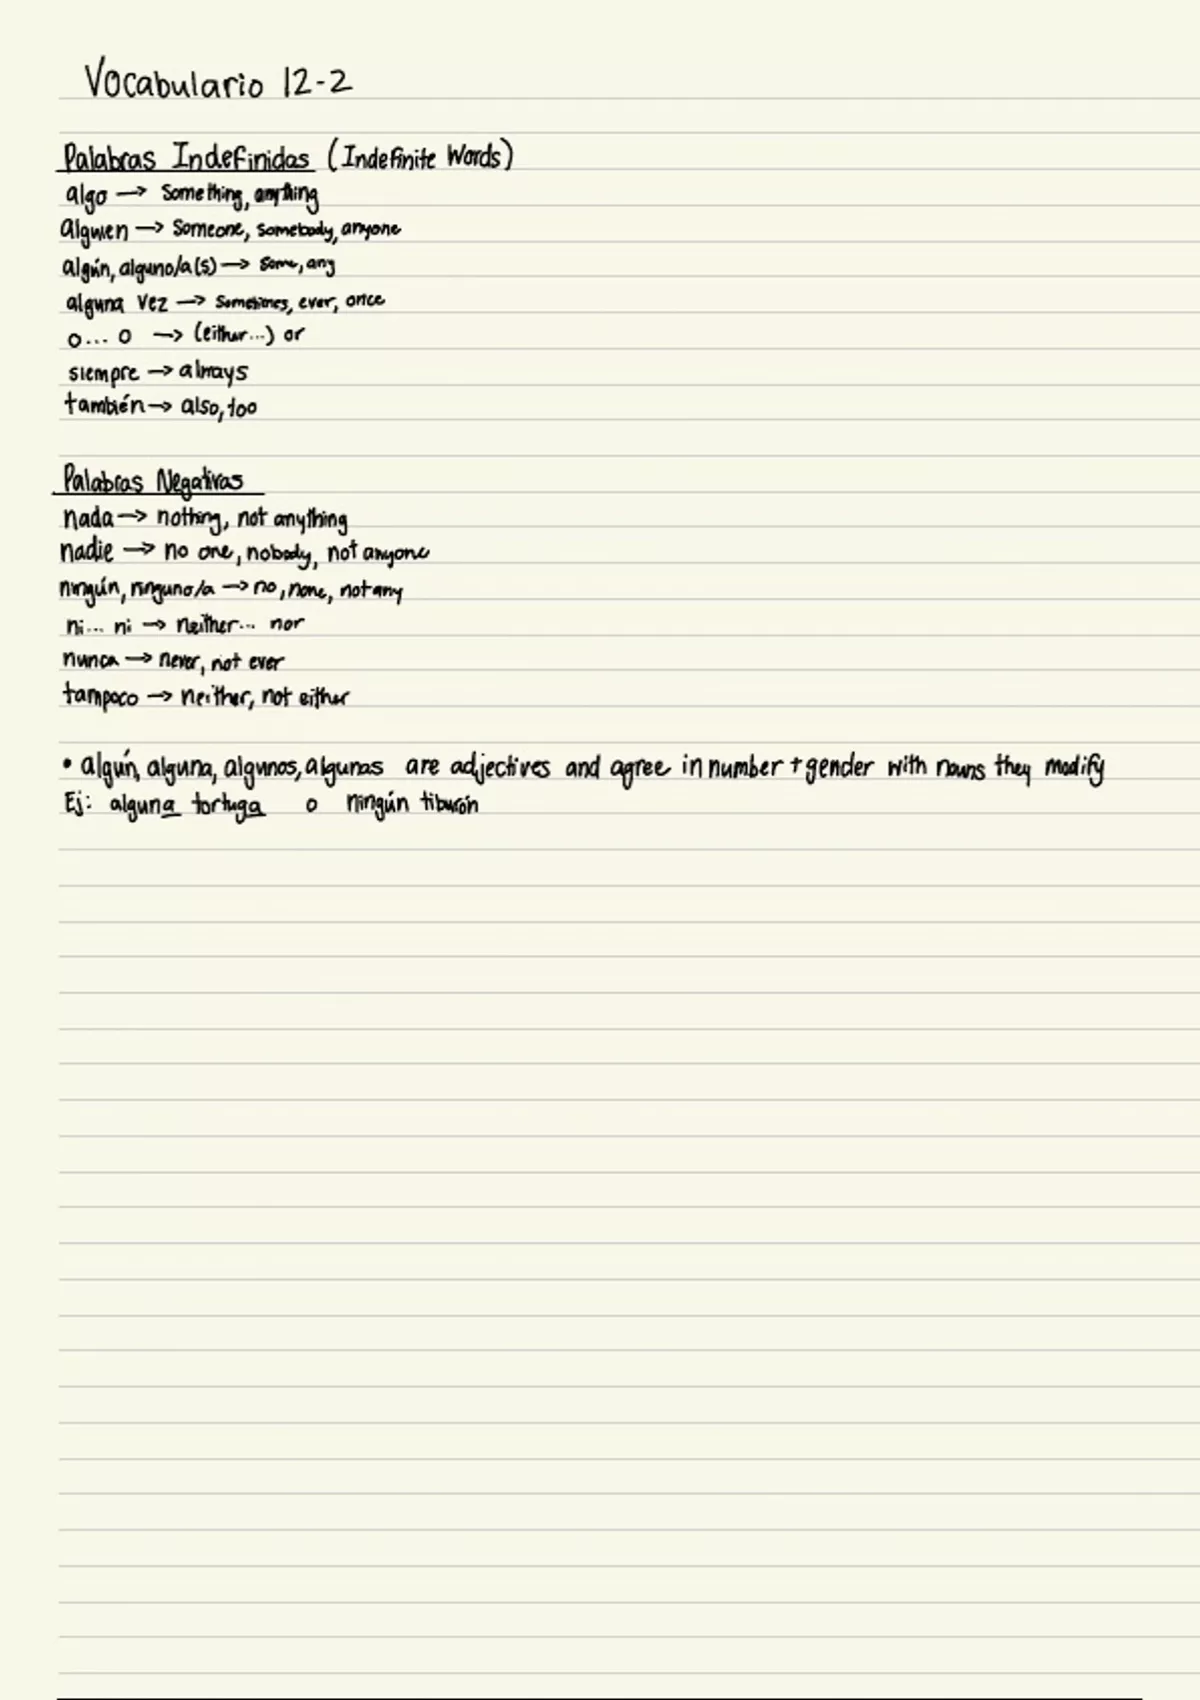 Vocabulario 12-2
Palabras Indefinidas (Indefinite Words)
algo → Something, anything
alguien → Someone, somebody, anyone
algún, alguno/a(s) → some, any
alguna vez → Sometimes, ever, once
o... o → (either...) or
siempre → always
también → also, too
Palabras Negativas
nada → nothing, not anything
nadie → no one, nobody, not anyone
ningún, ninguno/a → no, none, not any
ni... ni → neither... nor
nunca → never, not ever
tampoco → neither, not either
• algún, alguna, algunos, algunas are adjectives and agree in number + gender with nouns they modify
Ej: alguna tortuga o ningún tiburón